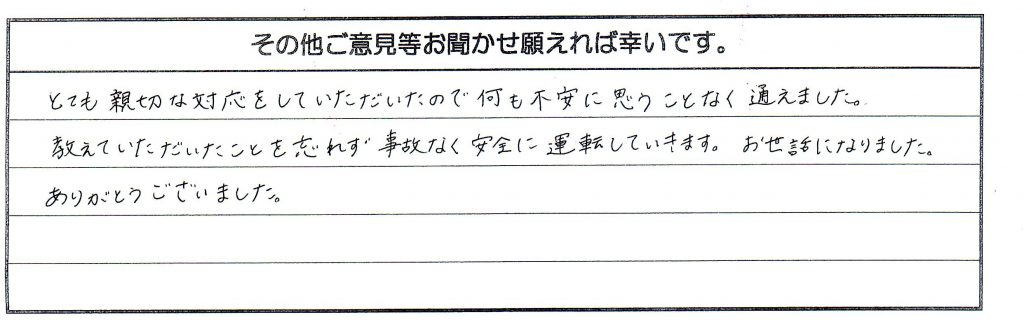 その他ご意見等お聞かせ願えれば幸いです。
とても親切な対応をしていただいたので何も不安に思うことなく通えました。
教えていただいたことを忘れず事故なく安全に運転していきます。お世話になりました。
ありがとうございました。